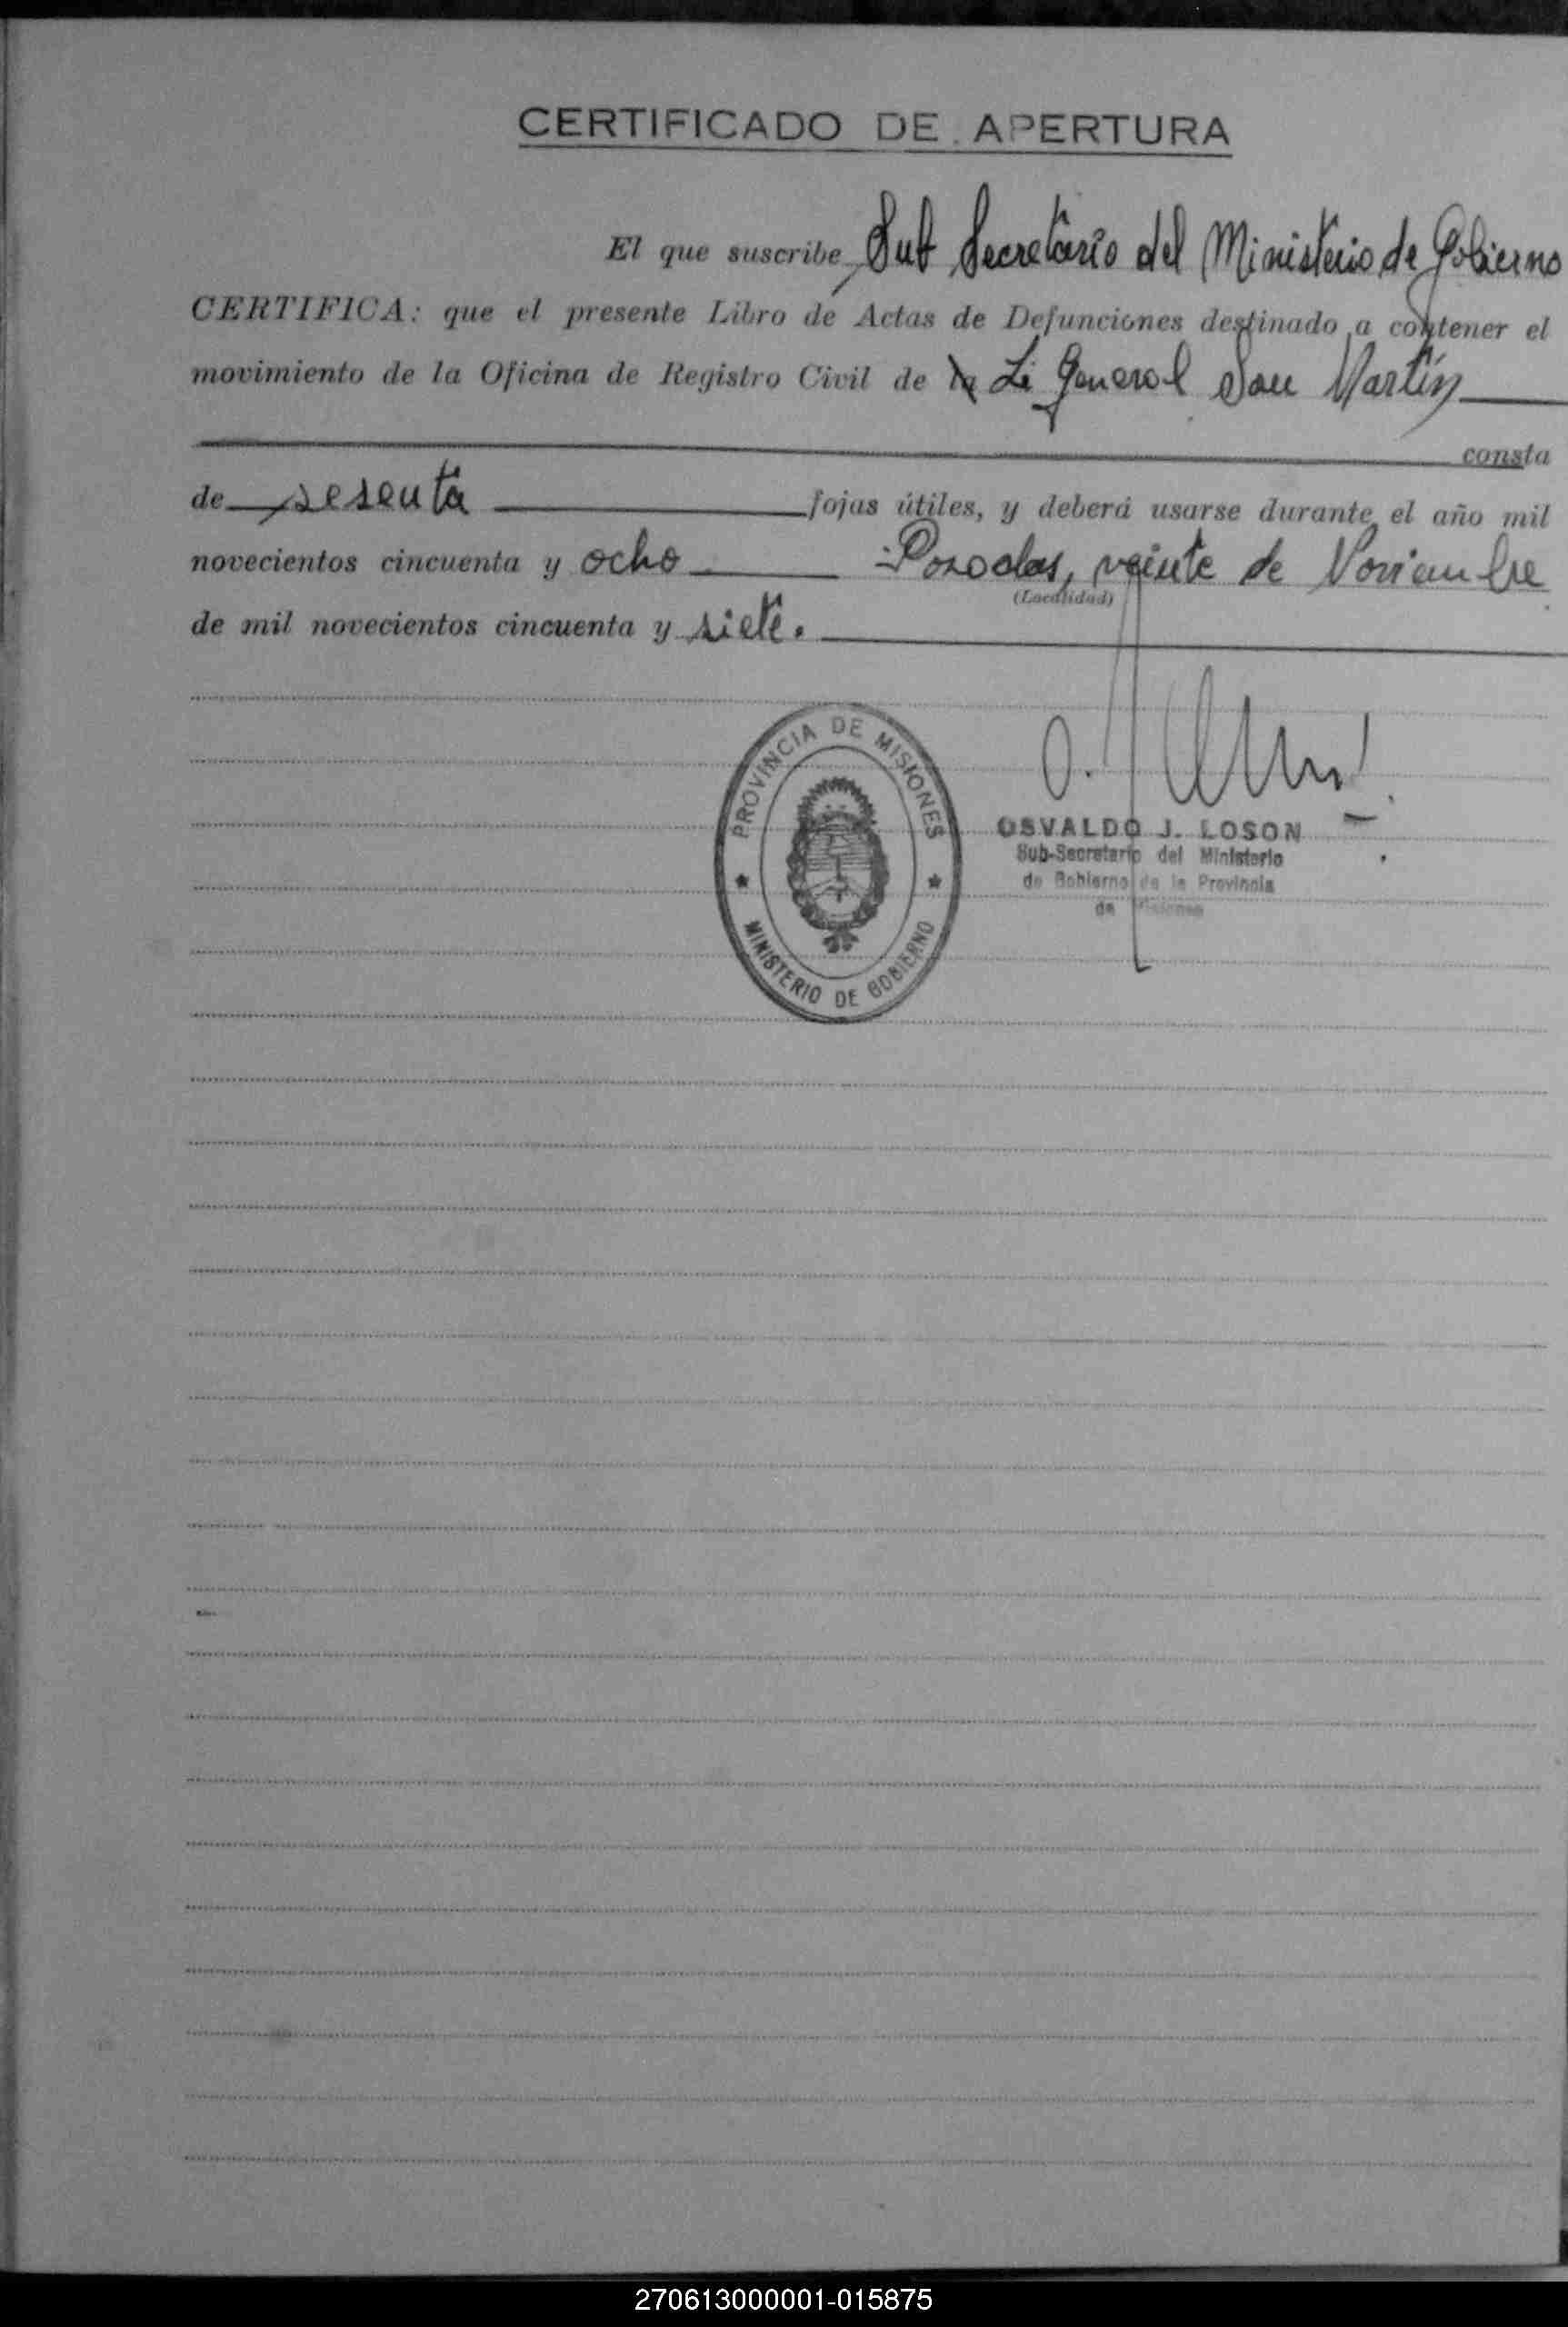 CERTIFICADO DE APERTURA
El que suscribe, Sub Secretario del Ministerio de Gobierno
CERTIFICA: que el presente Libro de Actas de Defunciones destinado a contener el
movimiento de la Oficina de Registro Civil de General San Martín
consta
de sesenta fojas útiles, y deberá usarse durante el año mil
novecientos cincuenta y ocho Posadas, veinte de Noviembre
(Localidad)
de mil novecientos cincuenta y siete.
PROVINCIA DE MISIONES
MINISTERIO DE GOBIERNO
OSVALDO J. LOSON
Sub-Secretario del Ministerio
de Gobierno de la Provincia
de Misiones
270613000001-015875